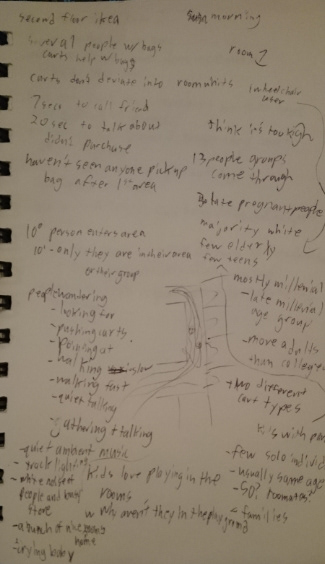 second floor ikea
morning
several people w/ bags
carts help w/ bags
room 1
carts don't deviate into room
wheelchair
later
7 sec to call
20 sec to talk about
didn't purchase
think it's too high
haven't seen anyone pick up
bag after 1st area
13 people groups
come through
late pregnant people
majority white
few elderly
few teens
10° person enters area
10' - only they are in their area
or their group
mostly millenial
- late millenial
age group
people wandering
- looking for
- pushing carts
- walking slow
- walking fast
- quiet talking
- gathering + talking
- move adults
than college
- two different
cart types
kids with
- quiet ambient music
- track lighting
people and busy
store
kids love playing in the
rooms
w why aren't they in the playroom?
- few solo
- usually same age
- 50? roommates?
- families
- a bunch of nice rooms
home
- crying baby